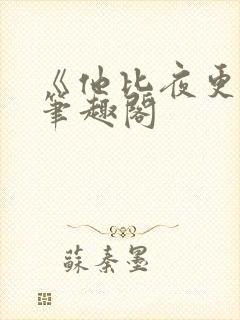 《他比夜更
筆趣閣
蘇秦墨